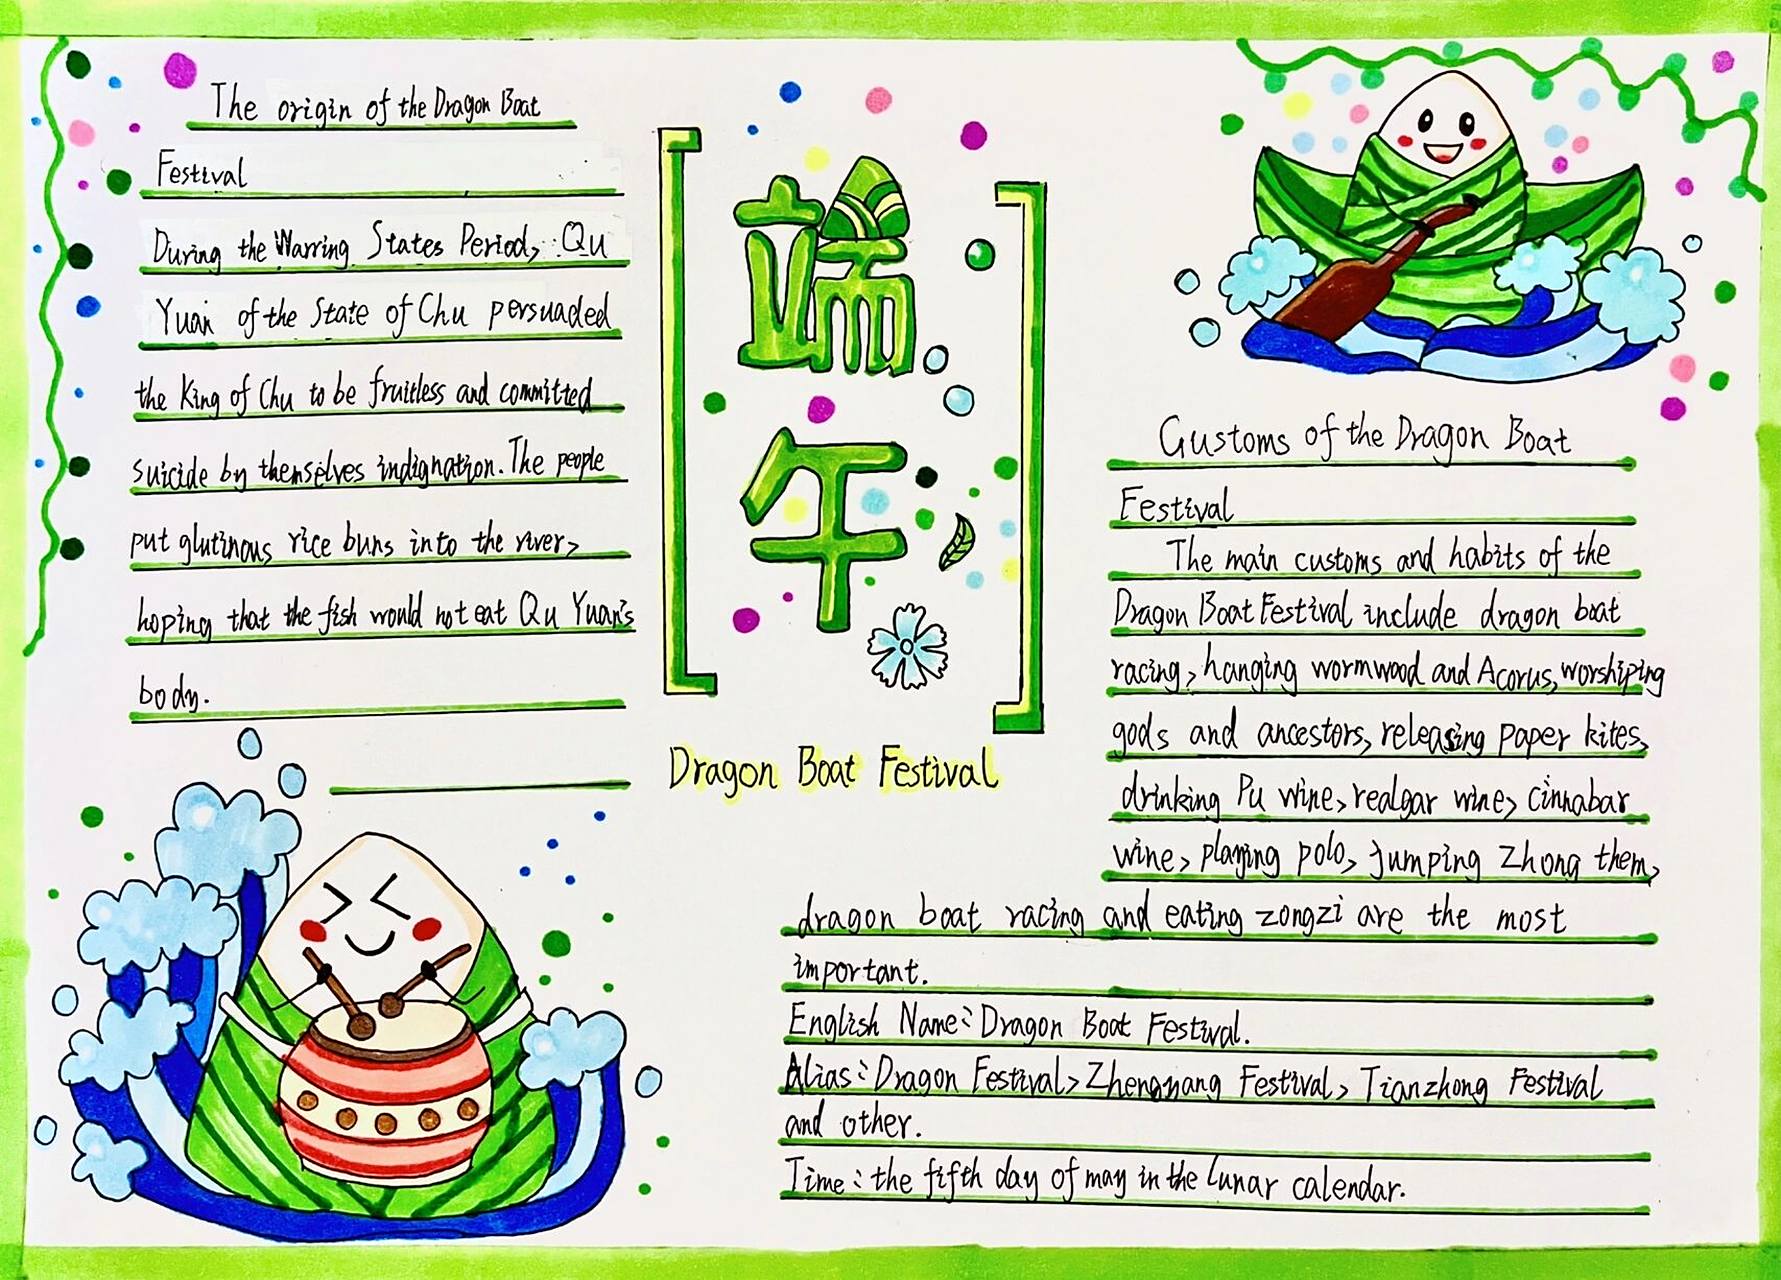 The origin of the Dragon Boat
Festival
During the Warring States Period, Qu
Yuan of the State of Chu persuaded
the King of Chu to be fruitless and committed
suicide by themselves indignation. The people
put glutinous rice buns into the river,
hoping that the fish would not eat Qu Yuan's
body.
端
午
Dragon Boat Festival
Customs of the Dragon Boat
Festival
The main customs and habits of the
Dragon Boat Festival include dragon boat
racing, hanging wormwood and Acorus, worshiping
gods and ancestors, releasing paper kites,
drinking Pu wine, realgar wine, cinnabar
wine, playing polo, jumping Zhong them,
dragon boat racing and eating zongzi are the most
important.
English Name: Dragon Boat Festival.
Alias: Dragon Festival, Zhengyang Festival, Tianzhong Festival
and other.
Time: the fifth day of may in the lunar calendar.